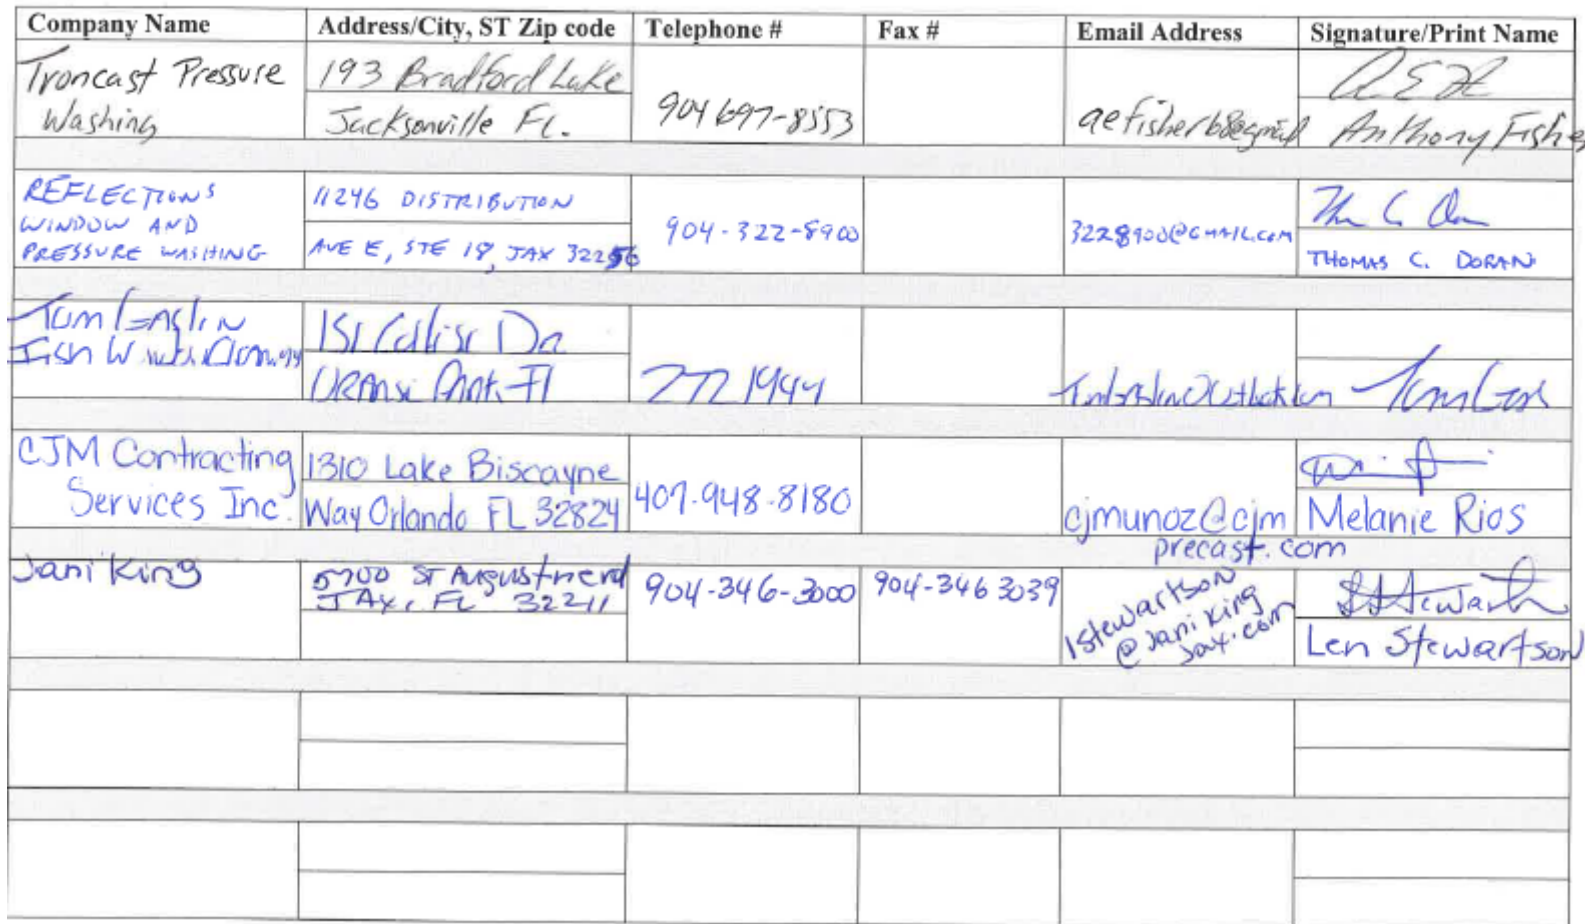 Company Name Address/City, ST Zip code Telephone # Fax # Email Address Signature/Print Name
Ironcast Pressure
Washing
193 Bradford Lake
Jacksonville FL.
904 697-8553
aefisher68@gmail
Anthony Fisher
REFLECTIONS
WINDOW AND
PRESSURE WASHING
11246 DISTRIBUTION
AVE E, STE 18, JAX 32256
904-322-8900
3228900@GMAIL.COM
THOMAS C. DORAN
Tom
Fish Window
Dr
Fl
272 1944
Tom
CJM Contracting
Services Inc.
1310 Lake Biscayne
Way Orlando FL 32824
407-948-8180
cjmunoz@cjm
precast.com
Melanie Rios
Jani King
5700 ST Augustine rd
JAX, FL 32211
904-346-3000
904-346 3039
lstewartson
@Jani King
Jax.com
Len Stewartson